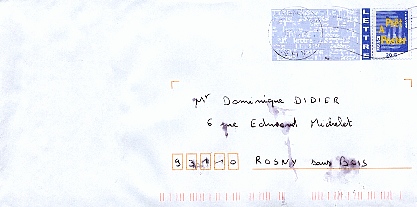 LETTRE
Prêt
à
Poster
20 g
Mr Dominique DIDIER
6 rue Edouard Michelet
93110 ROSNY sous BOIS